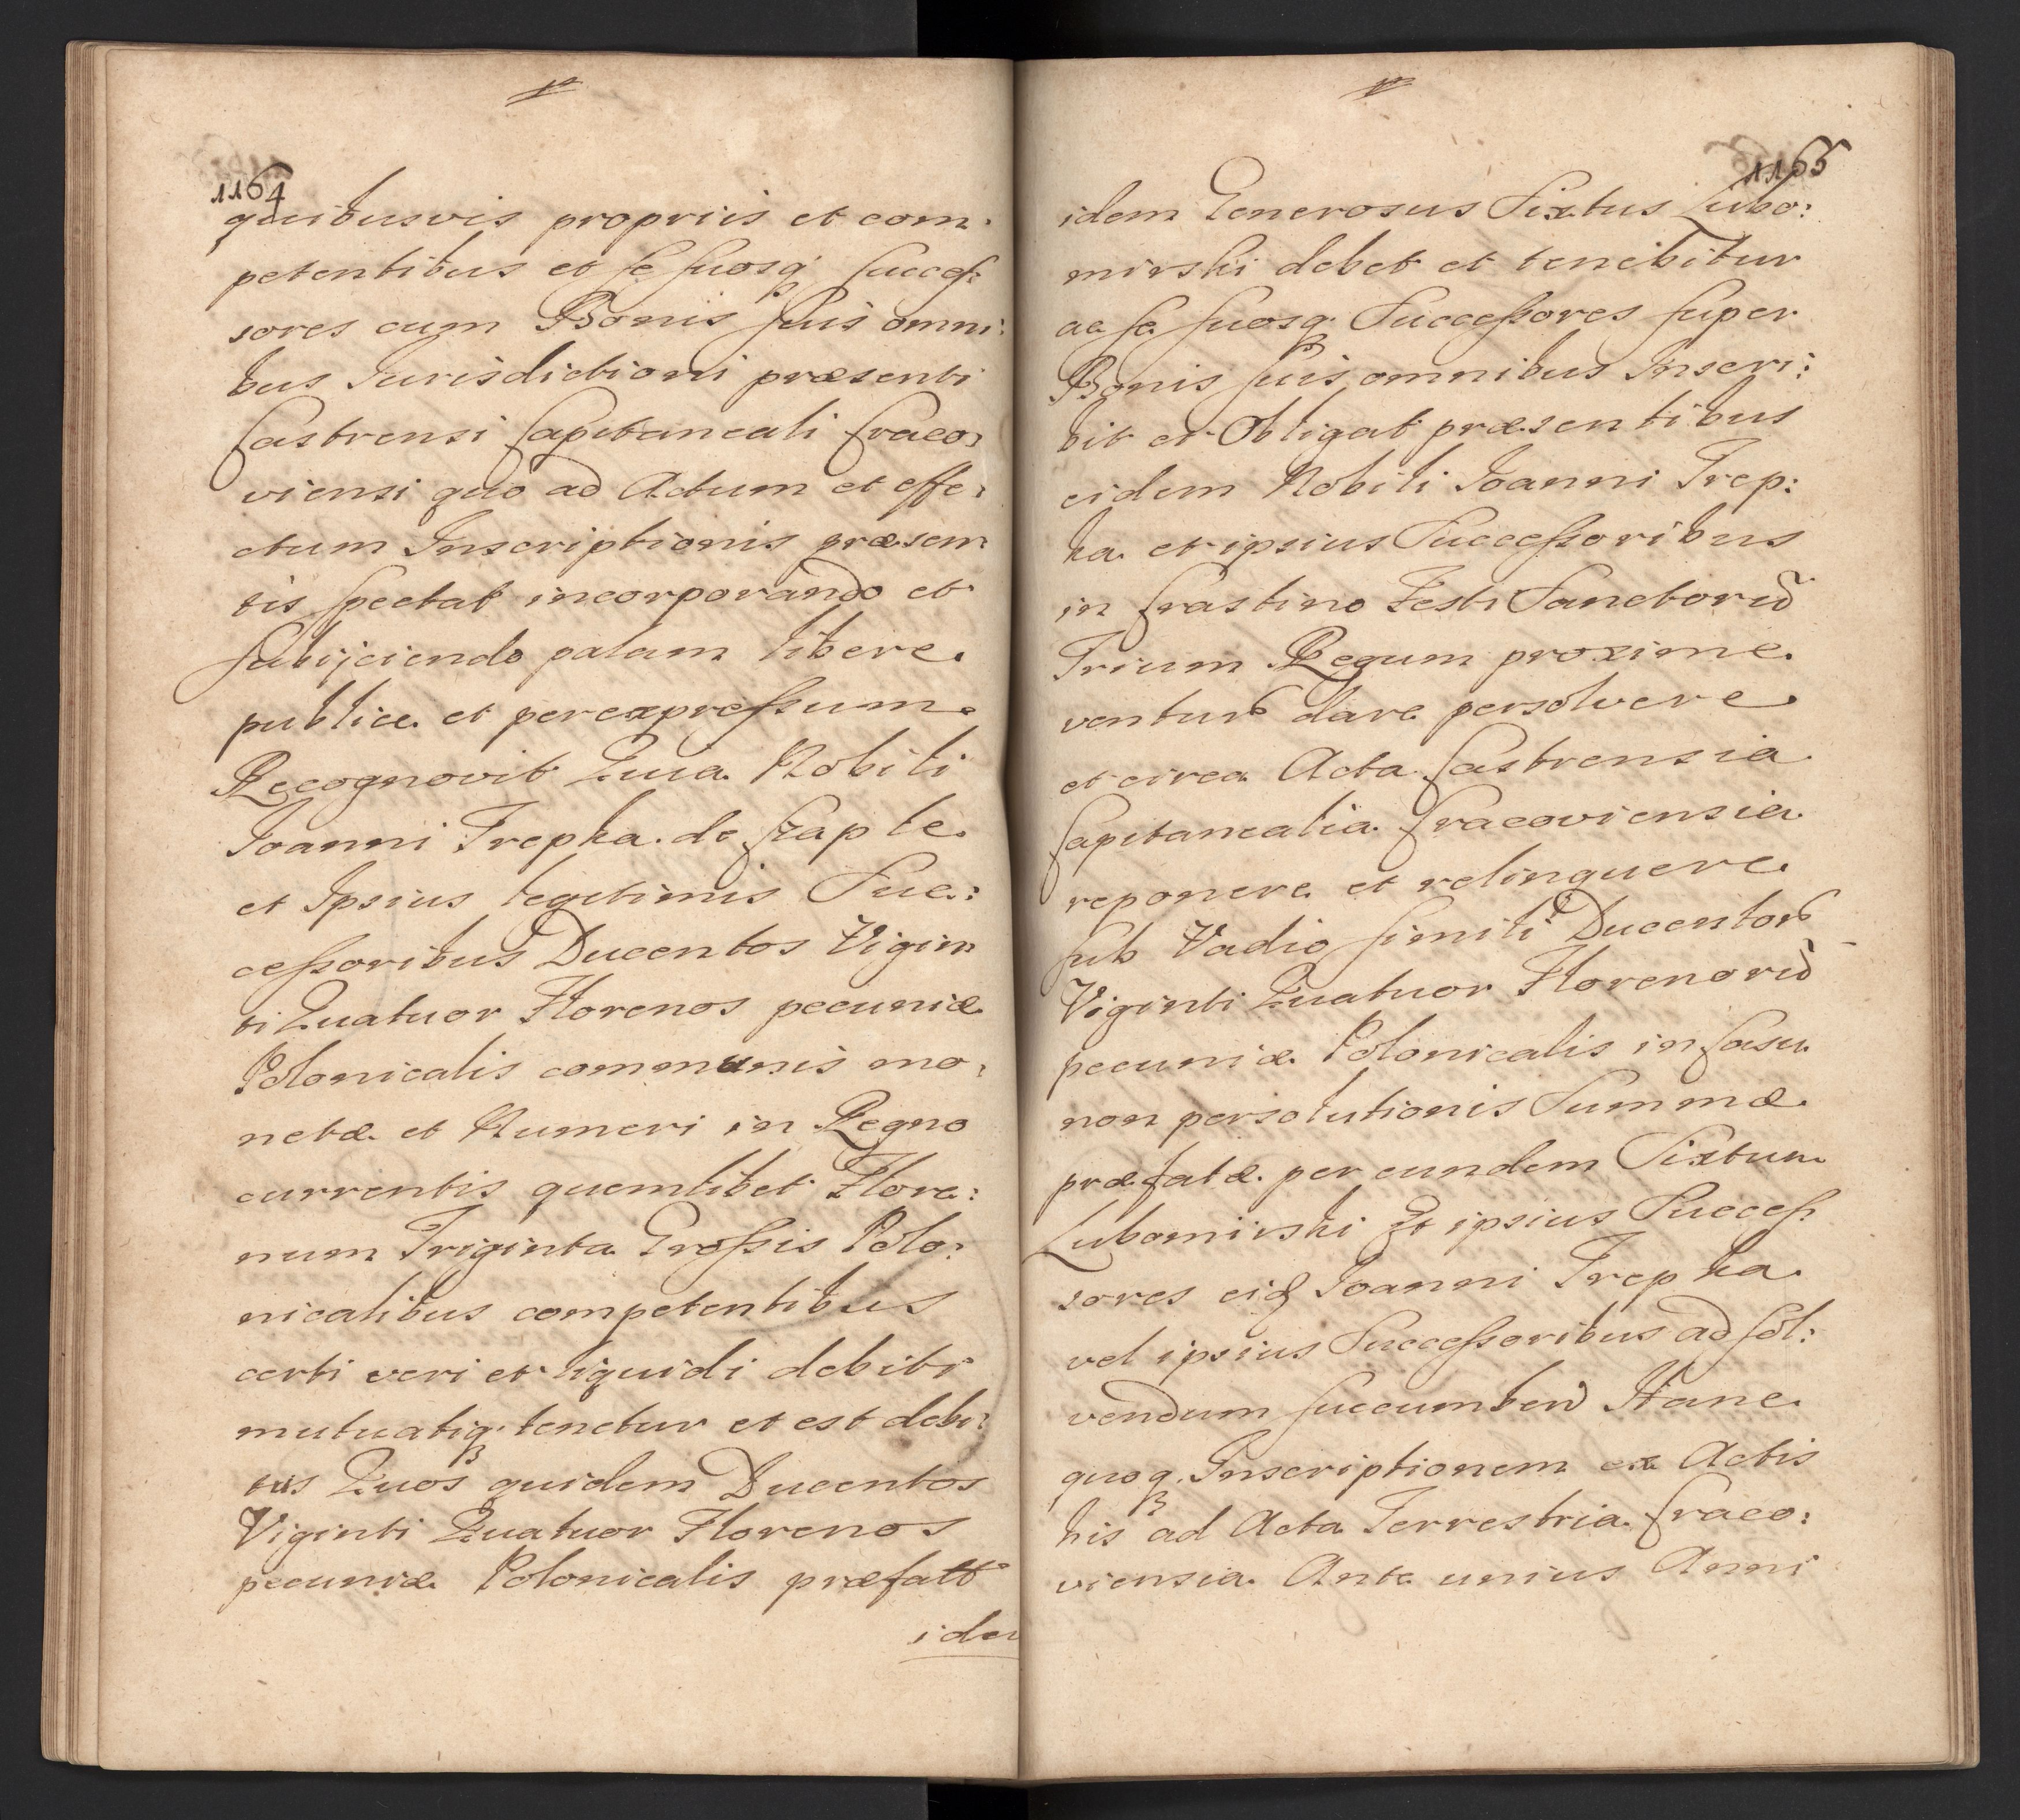 1164
quibusvis propriis et com:
petentibus et se suosq; succes:
sores cum Bonis suis omni:
bus Iurisdictioni præsenti
Castrensi Capitaneali Craco:
viensi quo ad Actum et effe:
ctum Inscriptionis præsen:
tis spectat incorporando et
subijciendo palam libere
publice et per expressum
Recognovit Quia Nobili
Joanni Trepka de Czaple
et Ipsius legitimis Suc:
cessoribus Ducentos Vigin
ti Quatuor Florenos pecuniæ
Polonicalis communis mo:
netæ et Numeri in Regno
currentis quemlibet Flore:
num Triginta Grossis Polo:
nicalibus competentibus
certi veri et liquidi debiti
mutuatiq; tenetur et est debi:
tus Quos quidem Ducentos
Viginti Quatuor Florenos
pecuniæ Polonicalis præfatt
idem
1165
idem Generosus Sixtus Lubo:
mirski debet et tenebitur
ac se suosq; Successores super
Bonis suis omnibus Inscri:
bit et Obligat præsentibus
eidem Nobili Joanni Trep:
ka et ipsius Successoribus
in Crastino Festi Sanctorũ
Trium Regum proxime
ventur dare persolvere
et circa Acta Castrensia
Capitanealia Cracoviensia
reponere et relinquere
sub Vadio simili Ducentor
Viginti Quatuor Florenorũ
pecuniæ Polonicalis in Casu
non persolutionis Summæ
præfatæ per eundem Sixtum
Lubomirski Et ipsius Succes
sores eid Joanni Trepka
vel ipsius Successoribus ad sol:
vendum succumben Hanc
quoq; Inscriptionem ex Actis
his ad Acta Terrestria Craco:
viensia Ante unius Anni